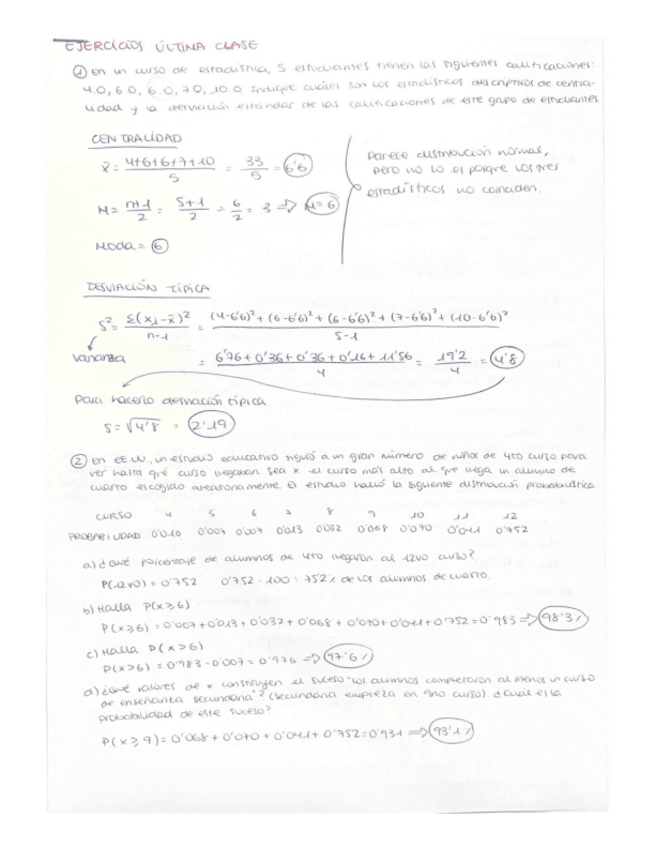 EJERCICIOS ÚLTIMA CLASE
① En un curso de estadística, 5 estudiantes tienen las siguientes calificaciones:
4.0, 6.0, 6.0, 7.0, 10.0 Indique cuáles son los estadísticos descriptivos de centra-
lidad y la desviación estándar de las calificaciones de este grupo de estudiantes
CENTRALIDAD
x̄ = 4+6+6+7+10 / 5 = 33 / 5 = 6'6
M = n+1 / 2 = 5+1 / 2 = 6 / 2 = 3 ⇒ M=6
Moda = 6
Parece distribución normal,
pero no lo es porque los tres
estadísticos no coinciden.
DESVIACIÓN TÍPICA
S² = Σ(xi-x̄)² / n-1 = (4-6'6)² + (6-6'6)² + (6-6'6)² + (7-6'6)² + (10-6'6)² / 5-1
varianza = 6'76 + 0'36 + 0'36 + 0'16 + 11'56 / 4 = 19'2 / 4 = 4'8
Para hacerlo desviación típica
S = √4'8 = 2'19
② En EE.UU., un estudio educativo siguió a un gran número de niños de 4to curso para
ver hasta qué curso llegaban. Sea x el curso más alto al que llega un alumno de
cuarto escogido aleatoriamente. El estudio halló la siguiente distribución probabilística
CURSO 4 5 6 7 8 9 10 11 12
PROBABILIDAD 0'010 0'007 0'007 0'013 0'032 0'068 0'070 0'041 0'752
a) ¿Qué porcentaje de alumnos de 4to llegaron al 12vo curso?
P(12vo) = 0'752 0'752 · 100 = 75'2% de los alumnos de cuarto.
b) Halla P(x≥6)
P(x≥6) = 0'007 + 0'013 + 0'032 + 0'068 + 0'070 + 0'041 + 0'752 = 0'983 ⇒ 98'3%
c) Halla P(x>6)
P(x>6) = 0'983 - 0'007 = 0'976 ⇒ 97'6%
d) ¿Qué valores de x construyen el suceso "los alumnos completaron al menos un curso
de enseñanza secundaria"? (secundaria empieza en 9no curso) ¿Cuál es la
probabilidad de este suceso?
P(x≥9) = 0'068 + 0'070 + 0'041 + 0'752 = 0'931 ⇒ 93'1%